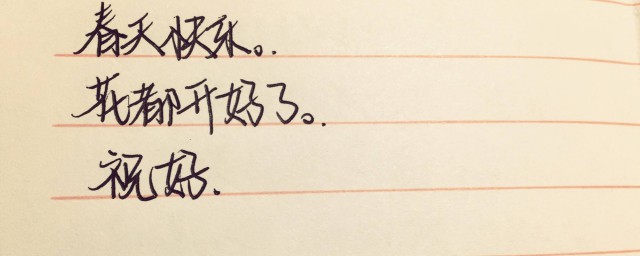 春天快乐。.
花都开好了。.
祝好.